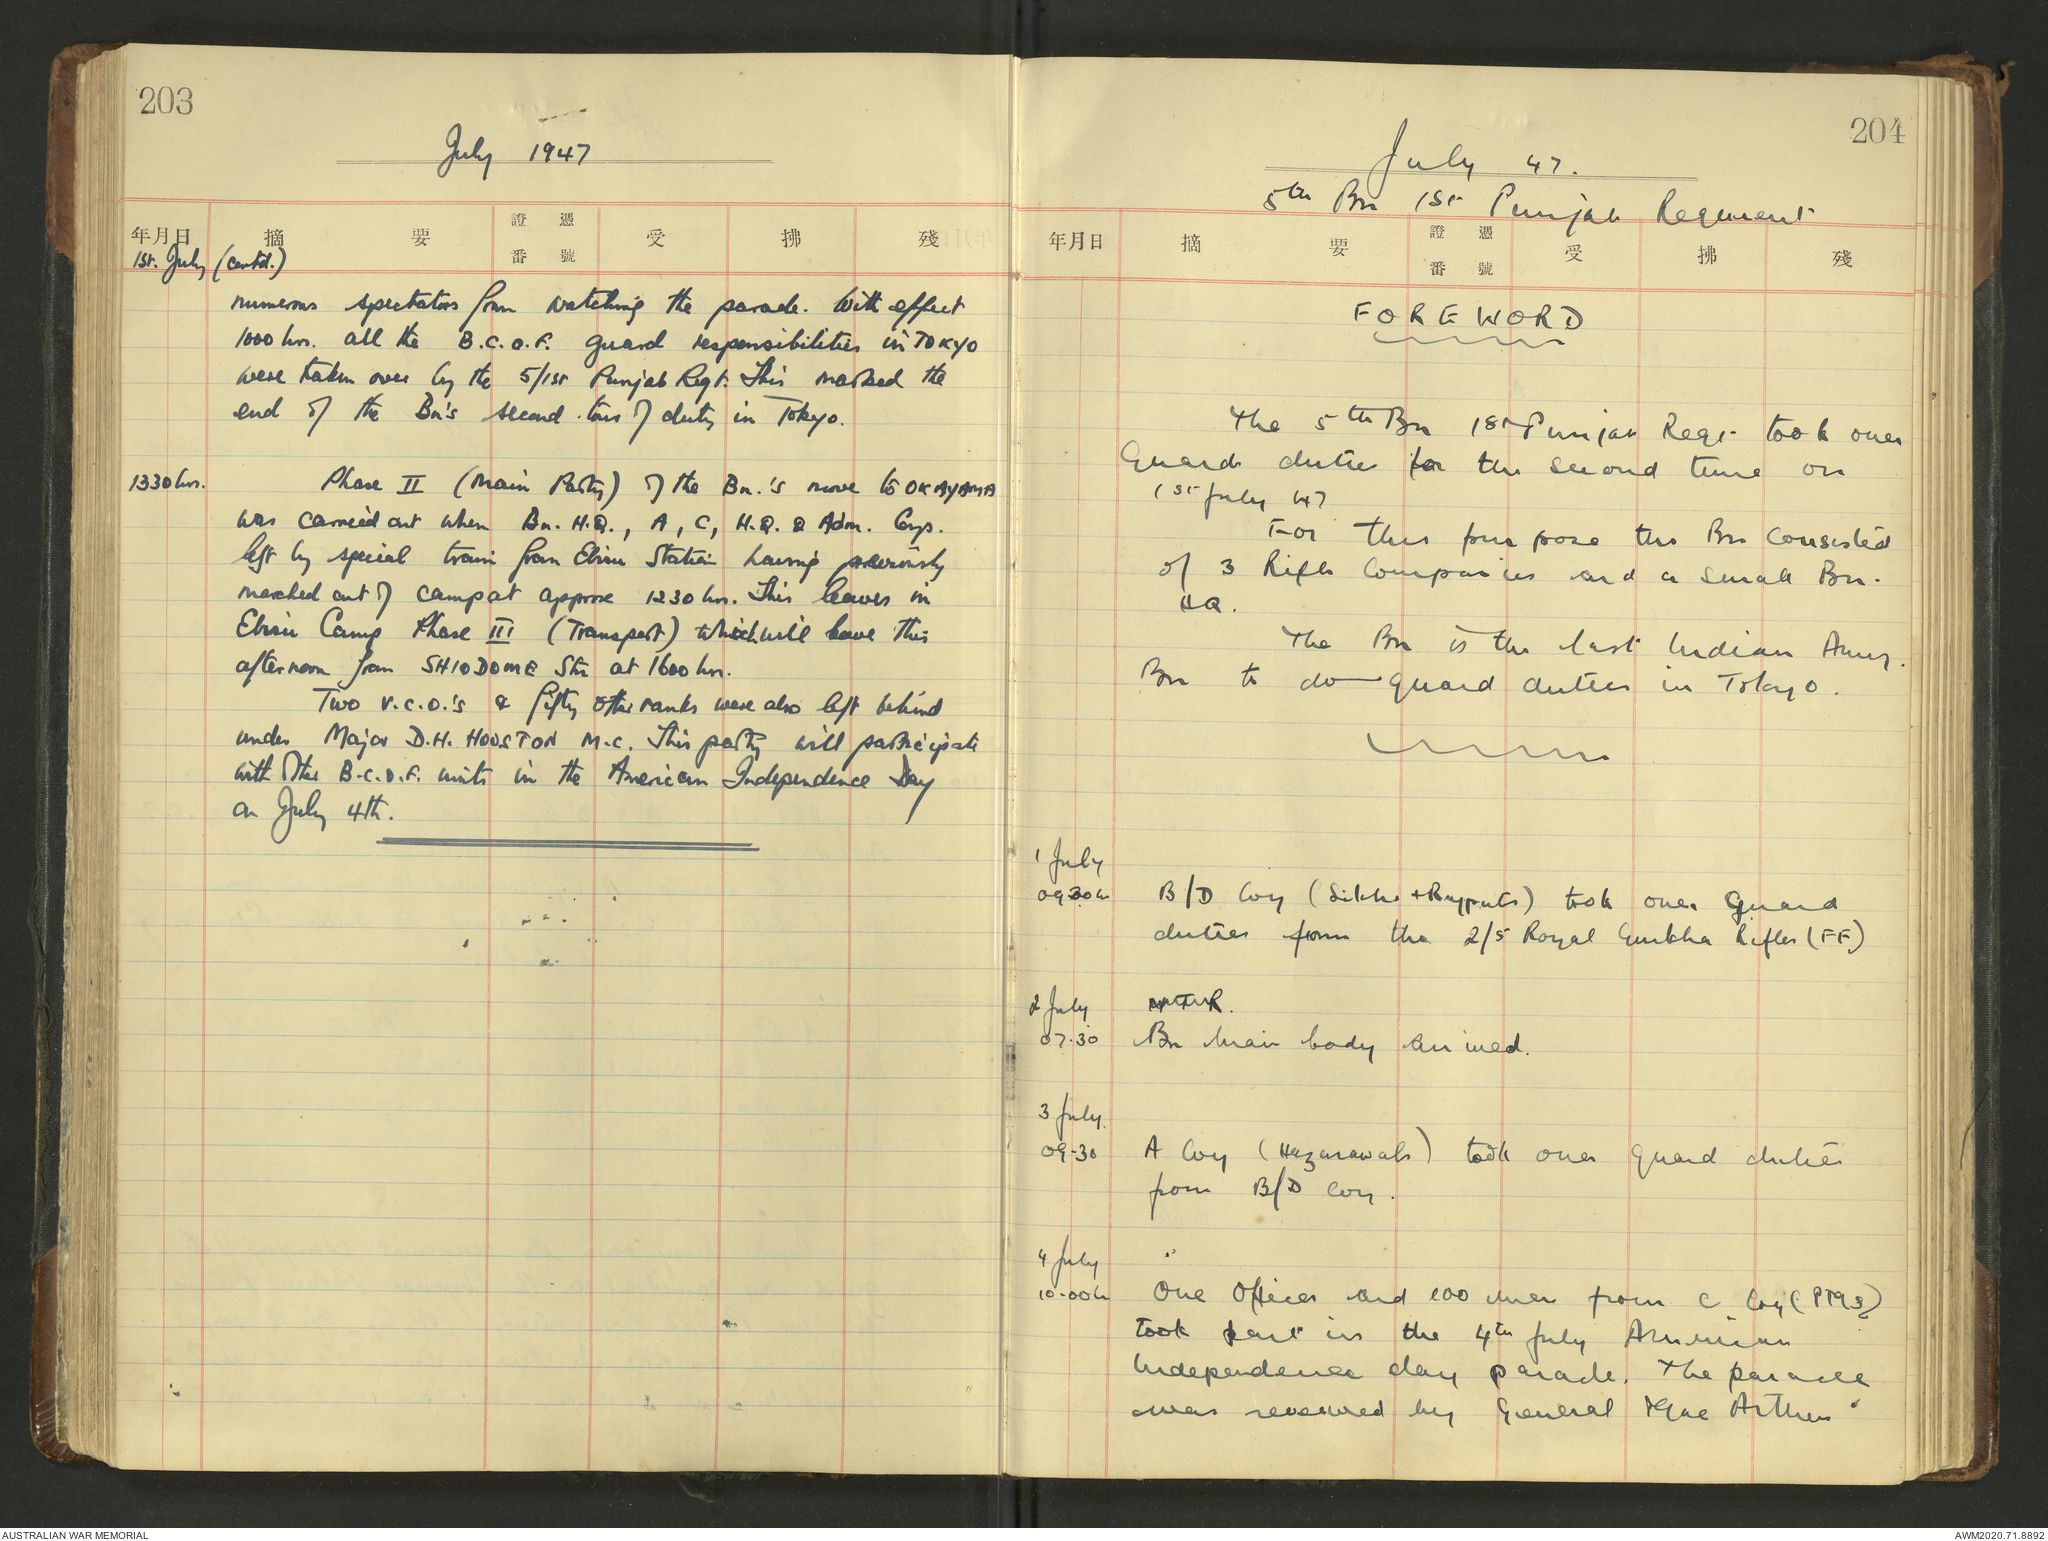 203
July 1947
年月日 摘 要 證憑番號 受 拂 殘
1st. July (contd.)
numerous spectators from watching the parade. With effect
1000 hrs. all the B.C.O.F. guard responsibilities in TOKYO
were taken over by the 5/1st Punjab Regt. This marked the
end of the Bn's second tour of duty in Tokyo.
1330 hrs. Phase II (Main Party) of the Bn.'s move to OKAYAMA
was carried out when Bn. H.Q., A, C, H.Q. & Adm. Coys.
left by special train from Ebisu Station having previously
marched out of camp at approx 1230 hrs. This leaves in
Ebisu Camp Phase III (Transport) which will leave this
afternoon from SHIODOME Stn at 1600 hrs.
Two V.C.O.'s & fifty other ranks were also left behind
under Major D.H. HOUSTON M.C. This party will participate
with other B.C.O.F. units in the American Independence Day
on July 4th.
204
July 47.
5th Bn 1st Punjab Regiment
年月日 摘 要 證憑番號 受 拂 殘
FOREWORD
The 5th Bn 1st Punjab Regt took over
Guard duties for the second time on
1st July 47
For this purpose the Bn consisted
of 3 Rifle Companies and a small Bn.
HQ.
The Bn is the last Indian Army.
Bn to do guard duties in Tokyo.
1 July
0930h B/D Coy (Sikhs + Rajputs) took over guard
duties from the 2/5 Royal Gurkha Rifles (FF)
2 July
07.30 Bn Main body arrived.
3 July.
09-30 A Coy (Hazarawals) took over guard duties
from B/D Coy.
4 July
10.00h One Officer and 100 men from C Coy (PMs)
took part in the 4th July American
Independence day parade. The parade
was reviewed by General Mac Arthur
AUSTRALIAN WAR MEMORIAL
AWM2020.71.8892